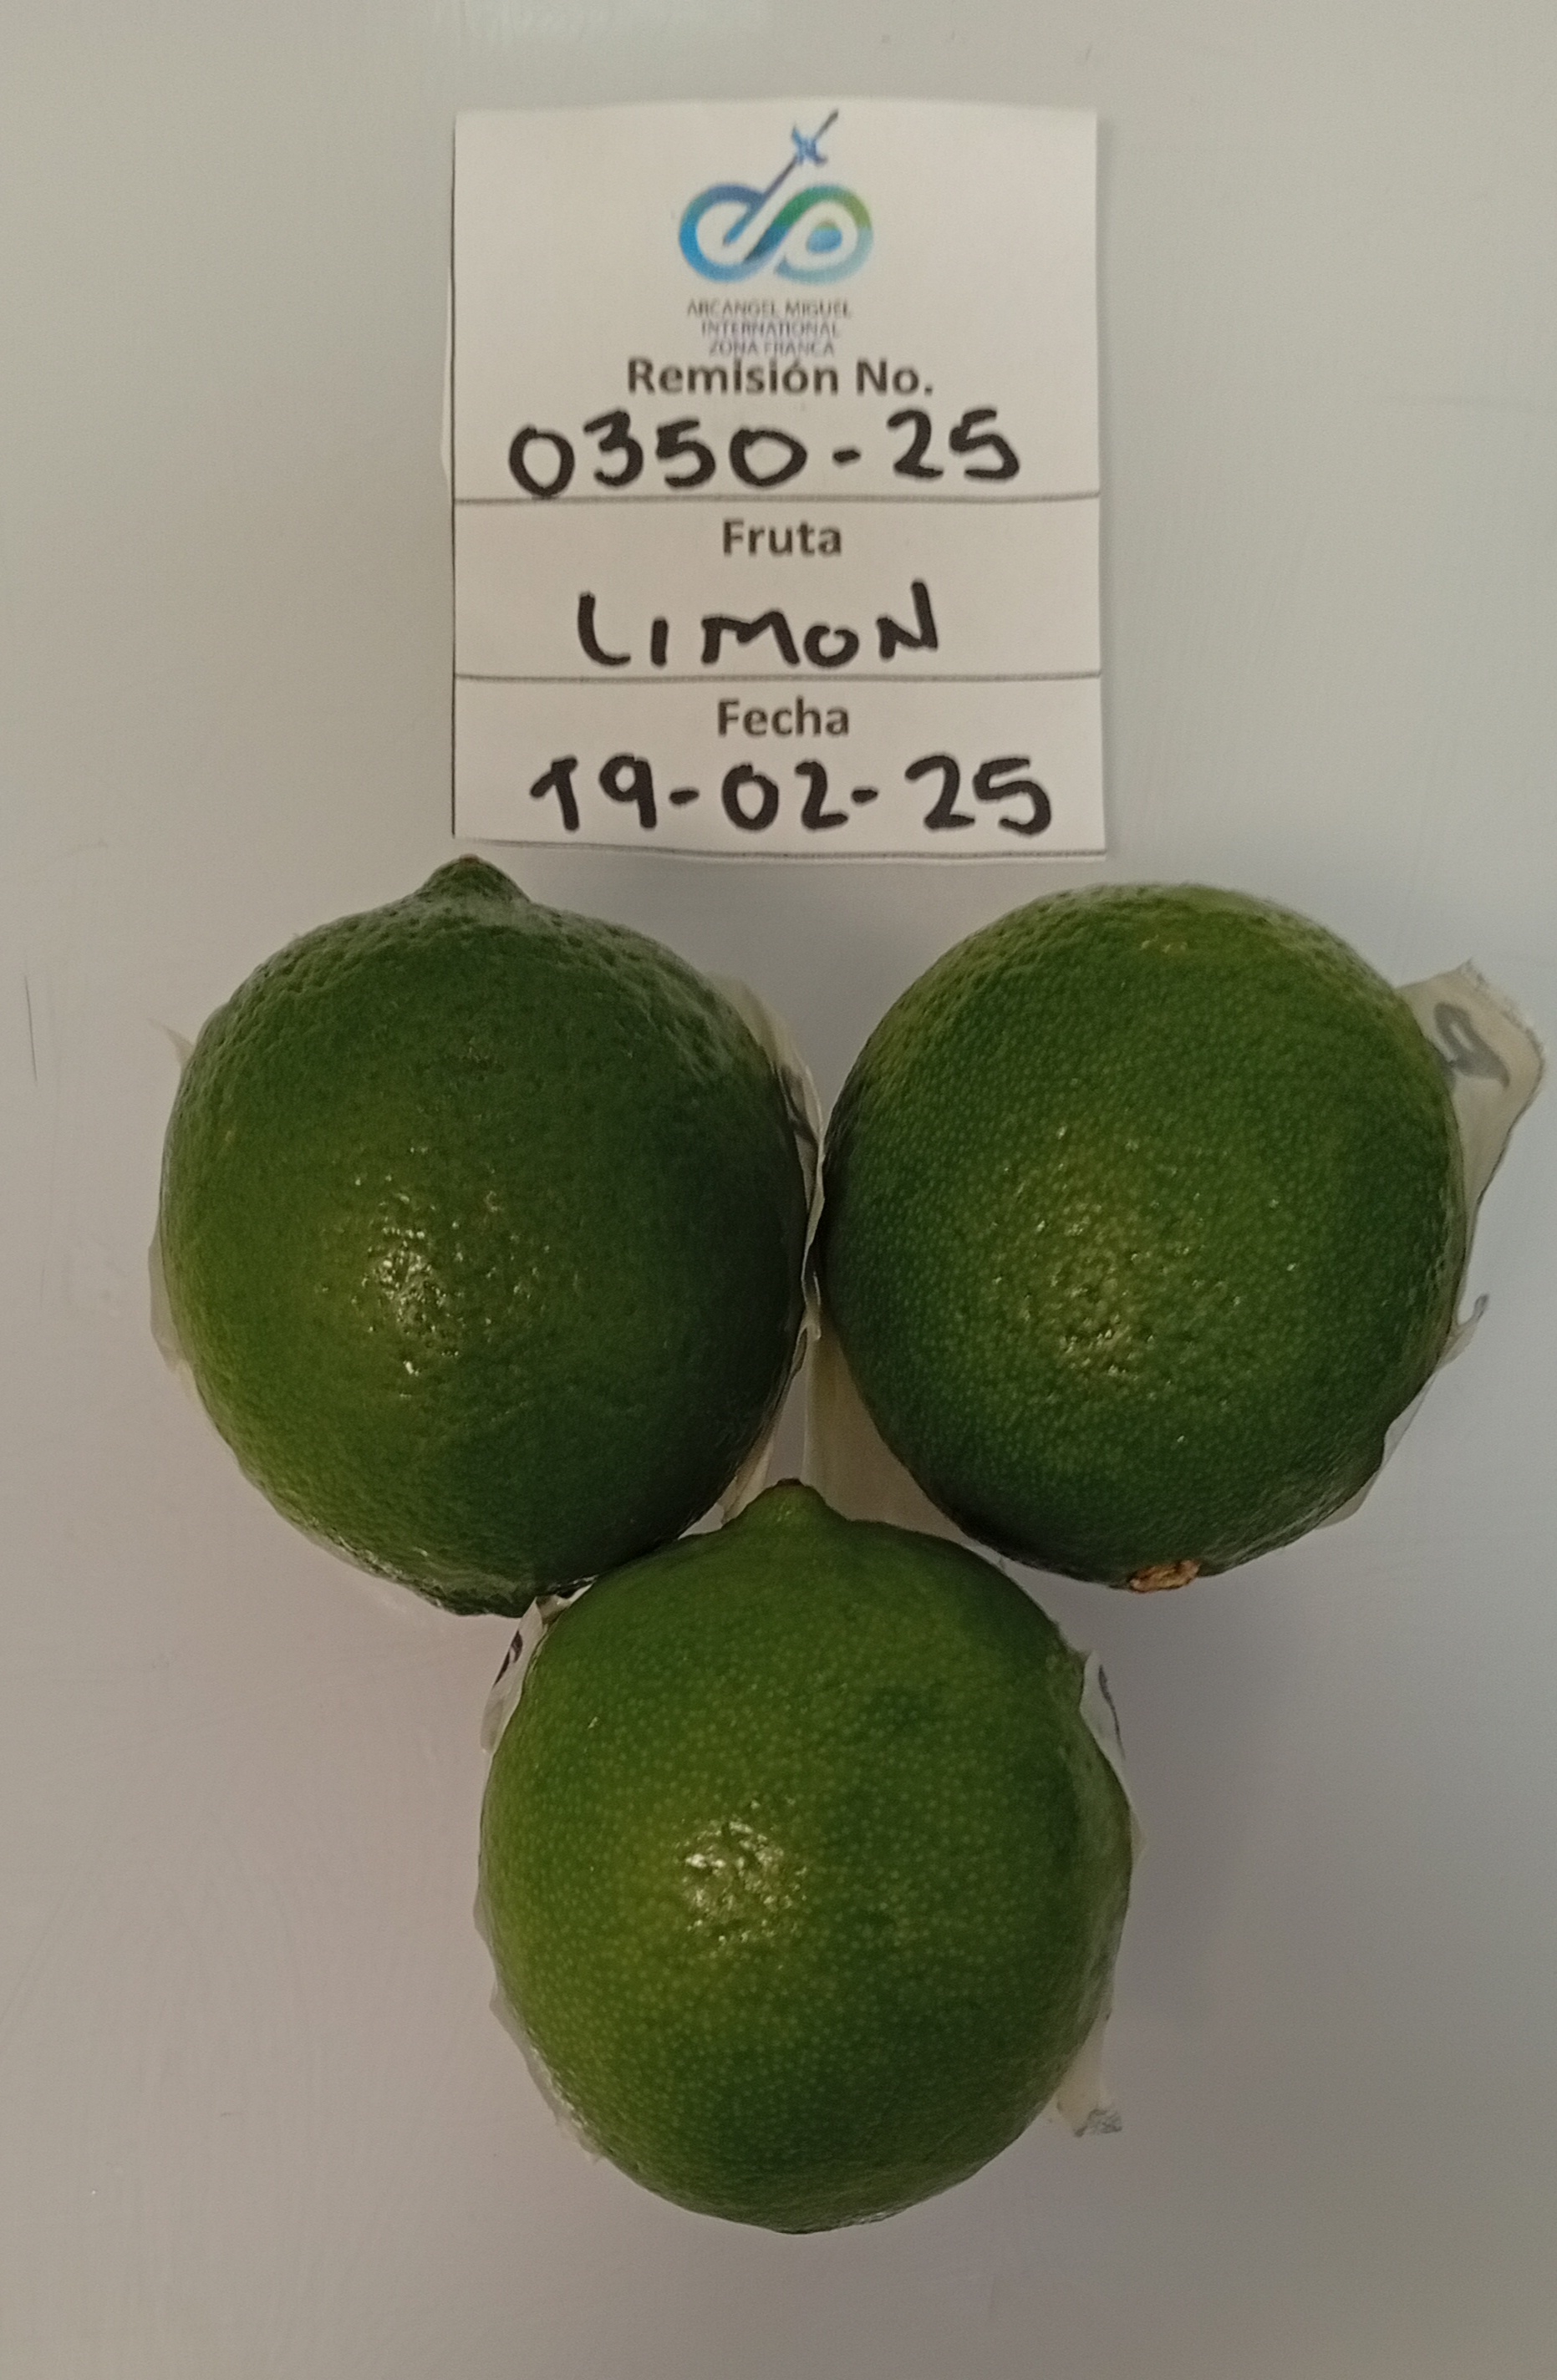 ARCANGEL MIGUEL
INTERNATIONAL
ZONA FRANCA
Remisión No.
0350-25
Fruta
LIMON
Fecha
19-02-25